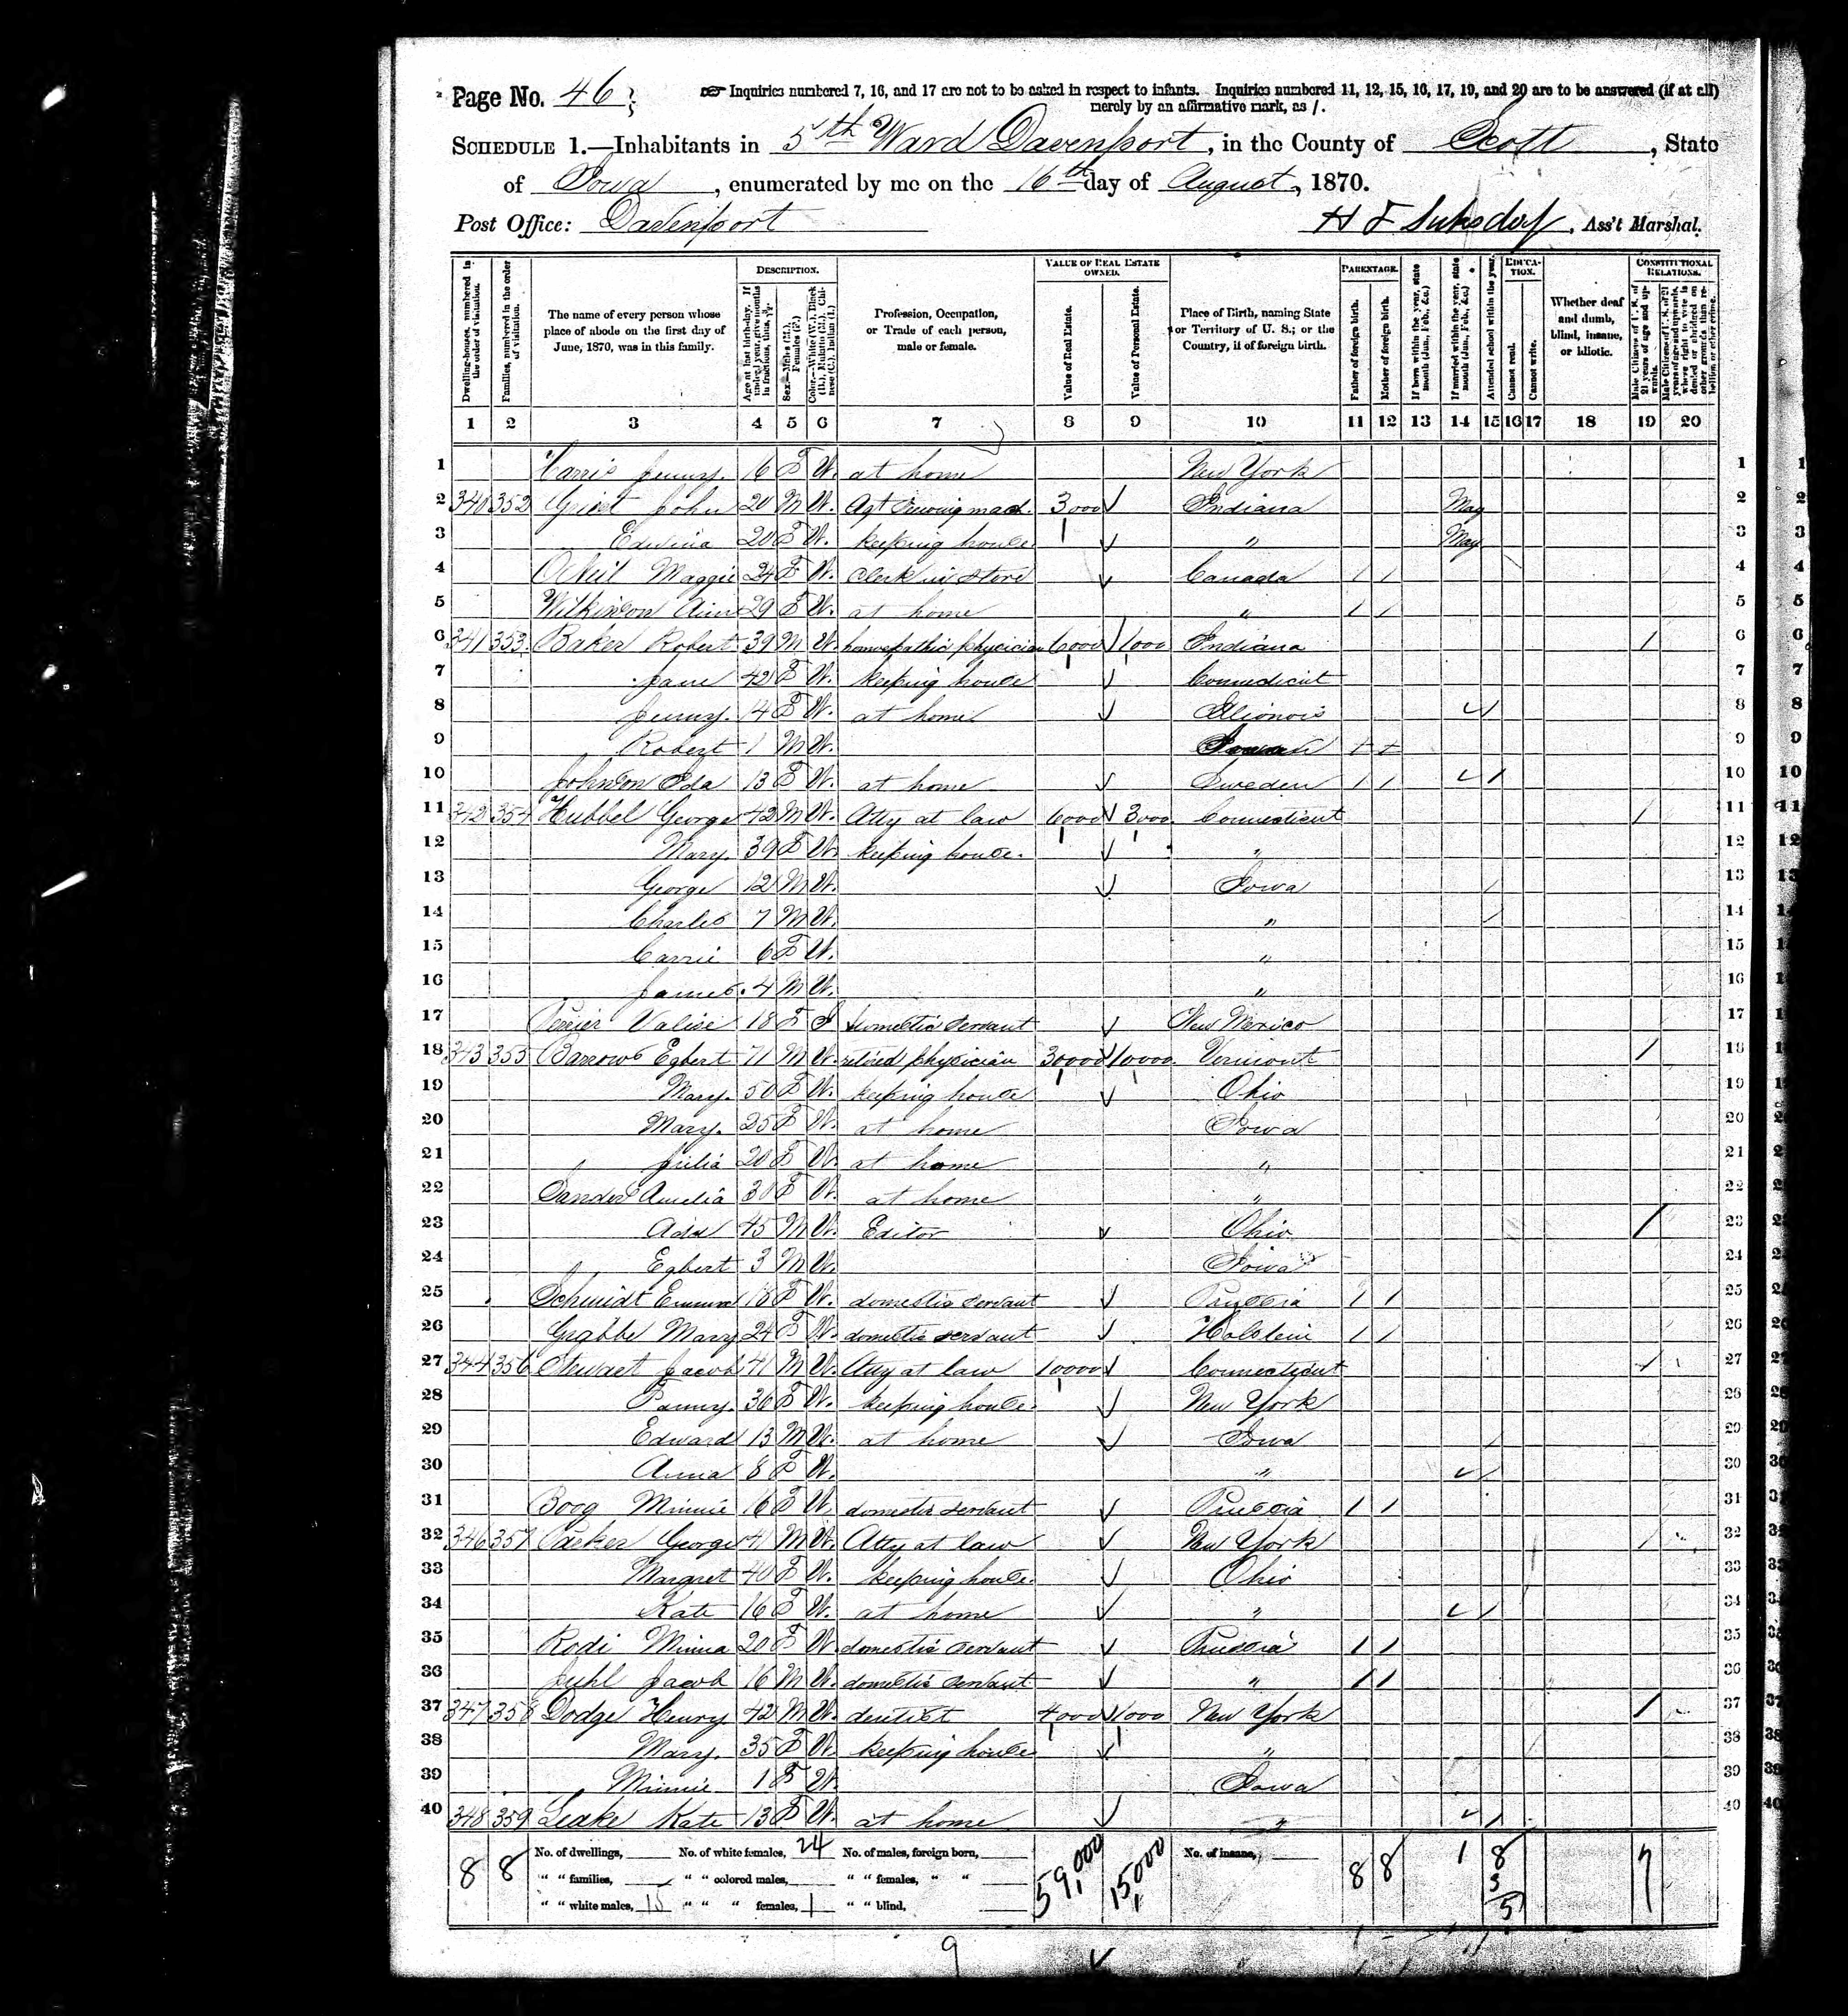 Page No. 46
Inquiries numbered 7, 16, and 17 are not to be asked in respect to infants. Inquiries numbered 11, 12, 15, 16, 17, 19, and 20 are to be answered (if at all)
merely by an affirmative mark, as /.
SCHEDULE 1.—Inhabitants in 5th Ward Davenport, in the County of Scott, State
of Iowa, enumerated by me on the 16th day of August, 1870.
Post Office: Davenport H F Suksdorf, Ass't Marshal.
DESCRIPTION. VALUE OF REAL ESTATE OWNED. PARENTAGE. EDUCATION. CONSTITUTIONAL RELATIONS.
Dwelling-houses, numbered in the order of visitation.
Families, numbered in the order of visitation.
The name of every person whose place of abode on the first day of June, 1870, was in this family.
Age at last birth-day. If under 1 year, give months in fractions, thus, 3/12.
Sex.—Males (M.), Females (F.)
Color.—White (W.), Black (B.), Mulatto (M.), Chinese (C.), Indian (I.)
Profession, Occupation, or Trade of each person, male or female.
Value of Real Estate.
Value of Personal Estate.
Place of Birth, naming State or Territory of U. S.; or the Country, if of foreign birth.
Father of foreign birth.
Mother of foreign birth.
If born within the year, state month (Jan., Feb., &c.)
If married within the year, state month (Jan., Feb., &c.)
Attended school within the year.
Cannot read.
Cannot write.
Whether deaf and dumb, blind, insane, or idiotic.
Male Citizens of U. S. of 21 years of age and upwards.
Male Citizens of U. S. of 21 years of age and upwards, whose right to vote is denied or abridged on other grounds than rebellion or other crime.
1 2 3 4 5 6 7 8 9 10 11 12 13 14 15 16 17 18 19 20
1 Jenny 16 F W. at home New York 1
2 340 352 Griest John 20 M W. Agt Sewing mach. 3000 Indiana May 2
3 Edwina 20 F W. keeping house " May 3
4 O'Neil Maggie 24 F W. Clerk in store Canada / / 4
5 Wilkinson 29 F W. at home " / / 5
6 341 353 Baker Robert 39 M W. homeopathic physician 6000 1000 Indiana / 6
7 Jane 42 F W. keeping house Connecticut 7
8 Jenny. 14 F W. at home Illionois / 8
9 Robert 1 M W. 9
10 Johnson Ida 13 F W. at home Sweden / / / 10
11 342 354 Hubbel George 42 M W. Atty at law 6000 3000 Connecticut / 11
12 Mary. 39 F W. keeping house. " 12
13 George 12 M W. Iowa / 13
14 Charles 7 M W. " / 14
15 Carrie 6 F W. " 15
16 James. 4 M W. " 16
17 Valise 18 F I domestic servant New Mexico 17
18 343 355 Barrows Egbert 71 M W. retired physician 30000 10000 Vermont / 18
19 Mary. 50 F W. keeping house Ohio 19
20 Mary. 25 F W. at home Iowa 20
21 Julia 20 F W. at home " 21
22 Sanders Amelia 30 F W. at home " 22
23 Add 45 M W. Editor Ohio / 23
24 Egbert 3 M W. Iowa 24
25 Schmidt Emma 18 F W. domestic servant Prussia / / 25
26 Grabbe Mary 24 F W. domestic servant Holstein / / 26
27 344 356 Stewart Jacob 41 M W. Atty at law 10000 Connecticut / 27
28 Fanny. 36 F W. keeping house. New York 28
29 Edward 13 M W. at home Iowa / 29
30 Anna 8 F W. " / 30
31 Boog Minnie 16 F W. domestic servant Prussia / / 31
32 346 357 Parker George 41 M W. Atty at law New York / 32
33 Margret 40 F W. keeping house. Ohio 33
34 Kate 16 F W. at home " / 34
35 Rodi Minna 20 F W. domestic servant Prussia / / 35
36 Juhl Jacob 16 M W. domestic servant " / / 36
37 347 358 Dodge Henry 42 M W. dentist 4000 1000 New York / 37
38 Mary. 35 F W. keeping house " 38
39 Minnie 1 F W. Iowa 39
40 348 359 Leake Kate 13 F W. at home " / 40
8 8 No. of dwellings, No. of white females, 24 No. of males, foreign born, 59,000 15,000 No. of insane, 8 8 1 8 7
" " families, " " colored males, " " females, " " 3
" " white males, 15 " " " females, 1 " " blind, 5
9